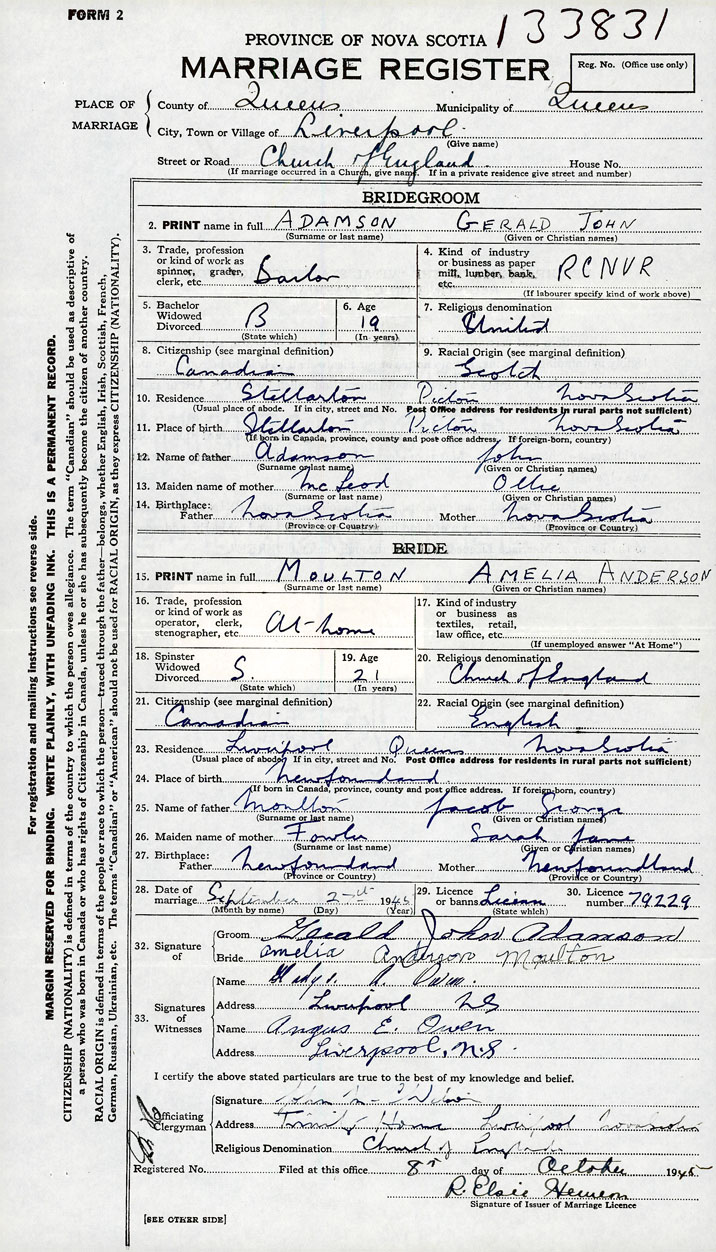 FORM 2
133831
PROVINCE OF NOVA SCOTIA
MARRIAGE REGISTER
Reg. No. (Office use only)
PLACE OF MARRIAGE
County of Queens Municipality of Queens
City, Town or Village of Liverpool
(Give name)
Street or Road Church of England House No.
(If marriage occurred in a Church, give name. If in a private residence give street and number)
BRIDEGROOM
2. PRINT name in full ADAMSON GERALD JOHN
(Surname or last name) (Given or Christian names)
3. Trade, profession or kind of work as spinner, grader, clerk, etc. Sailor
4. Kind of industry or business as paper mill, lumber, bank, etc. RCNVR
(If labourer specify kind of work above)
5. Bachelor Widowed Divorced B
(State which)
6. Age 19
(In years)
7. Religious denomination
United
8. Citizenship (see marginal definition)
Canadian
9. Racial Origin (see marginal definition)
Scotch
10. Residence Stellarton Pictou Nova Scotia
(Usual place of abode. If in city, street and No. Post Office address for residents in rural parts not sufficient)
11. Place of birth Stellarton Pictou Nova Scotia
(If born in Canada, province, county and post office address. If foreign-born, country)
12. Name of father Adamson John
(Surname or last name) (Given or Christian names)
13. Maiden name of mother McLeod Ollie
(Surname or last name) (Given or Christian names)
14. Birthplace: Father Nova Scotia Mother Nova Scotia
(Province or Country) (Province or Country)
BRIDE
15. PRINT name in full MOULTON AMELIA ANDERSON
(Surname or last name) (Given or Christian names)
16. Trade, profession or kind of work as operator, clerk, stenographer, etc. At-home
17. Kind of industry or business as textiles, retail, law office, etc.
(If unemployed answer "At Home")
18. Spinster Widowed Divorced S.
(State which)
19. Age 21
(In years)
20. Religious denomination
Church of England
21. Citizenship (see marginal definition)
Canadian
22. Racial Origin (see marginal definition)
English
23. Residence Liverpool Queens Nova Scotia
(Usual place of abode. If in city, street and No. Post Office address for residents in rural parts not sufficient)
24. Place of birth Newfoundland
(If born in Canada, province, county and post office address. If foreign-born, country)
25. Name of father Moulton Jacob George
(Surname or last name) (Given or Christian names)
26. Maiden name of mother Fowler Sarah Jane
(Surname or last name) (Given or Christian names)
27. Birthplace: Father Newfoundland Mother Newfoundland
(Province or Country) (Province or Country)
28. Date of marriage September 1945
(Month by name) (Day) (Year)
29. Licence or banns License
(State which)
30. Licence number 79229
32. Signature of
Groom Gerald John Adamson
Bride Amelia Anderson Moulton
33. Signatures of Witnesses
Name Gladys Owen
Address Liverpool NS
Name Angus E. Owen
Address Liverpool, N.S.
I certify the above stated particulars are true to the best of my knowledge and belief.
Officiating Clergyman
Signature
Address Trinity Liverpool Nova Scotia
Religious Denomination Church of England
Registered No. Filed at this office 8th day of October 1945
R. Elsie
Signature of Issuer of Marriage Licence
[SEE OTHER SIDE]
For registration and mailing instructions see reverse side.
MARGIN RESERVED FOR BINDING. WRITE PLAINLY, WITH UNFADING INK. THIS IS A PERMANENT RECORD.
CITIZENSHIP (NATIONALITY) is defined in terms of the country to which the person owes allegiance. The term "Canadian" should be used as descriptive of
a person who was born in Canada or who has rights of Citizenship in Canada, unless he or she has subsequently become the citizen of another country.
RACIAL ORIGIN is defined in terms of the people or race to which the person—traced through the father—belongs, whether English, Irish, Scottish, French,
German, Russian, Ukrainian, etc. The terms "Canadian" or "American" should not be used for RACIAL ORIGIN, as they express CITIZENSHIP (NATIONALITY).